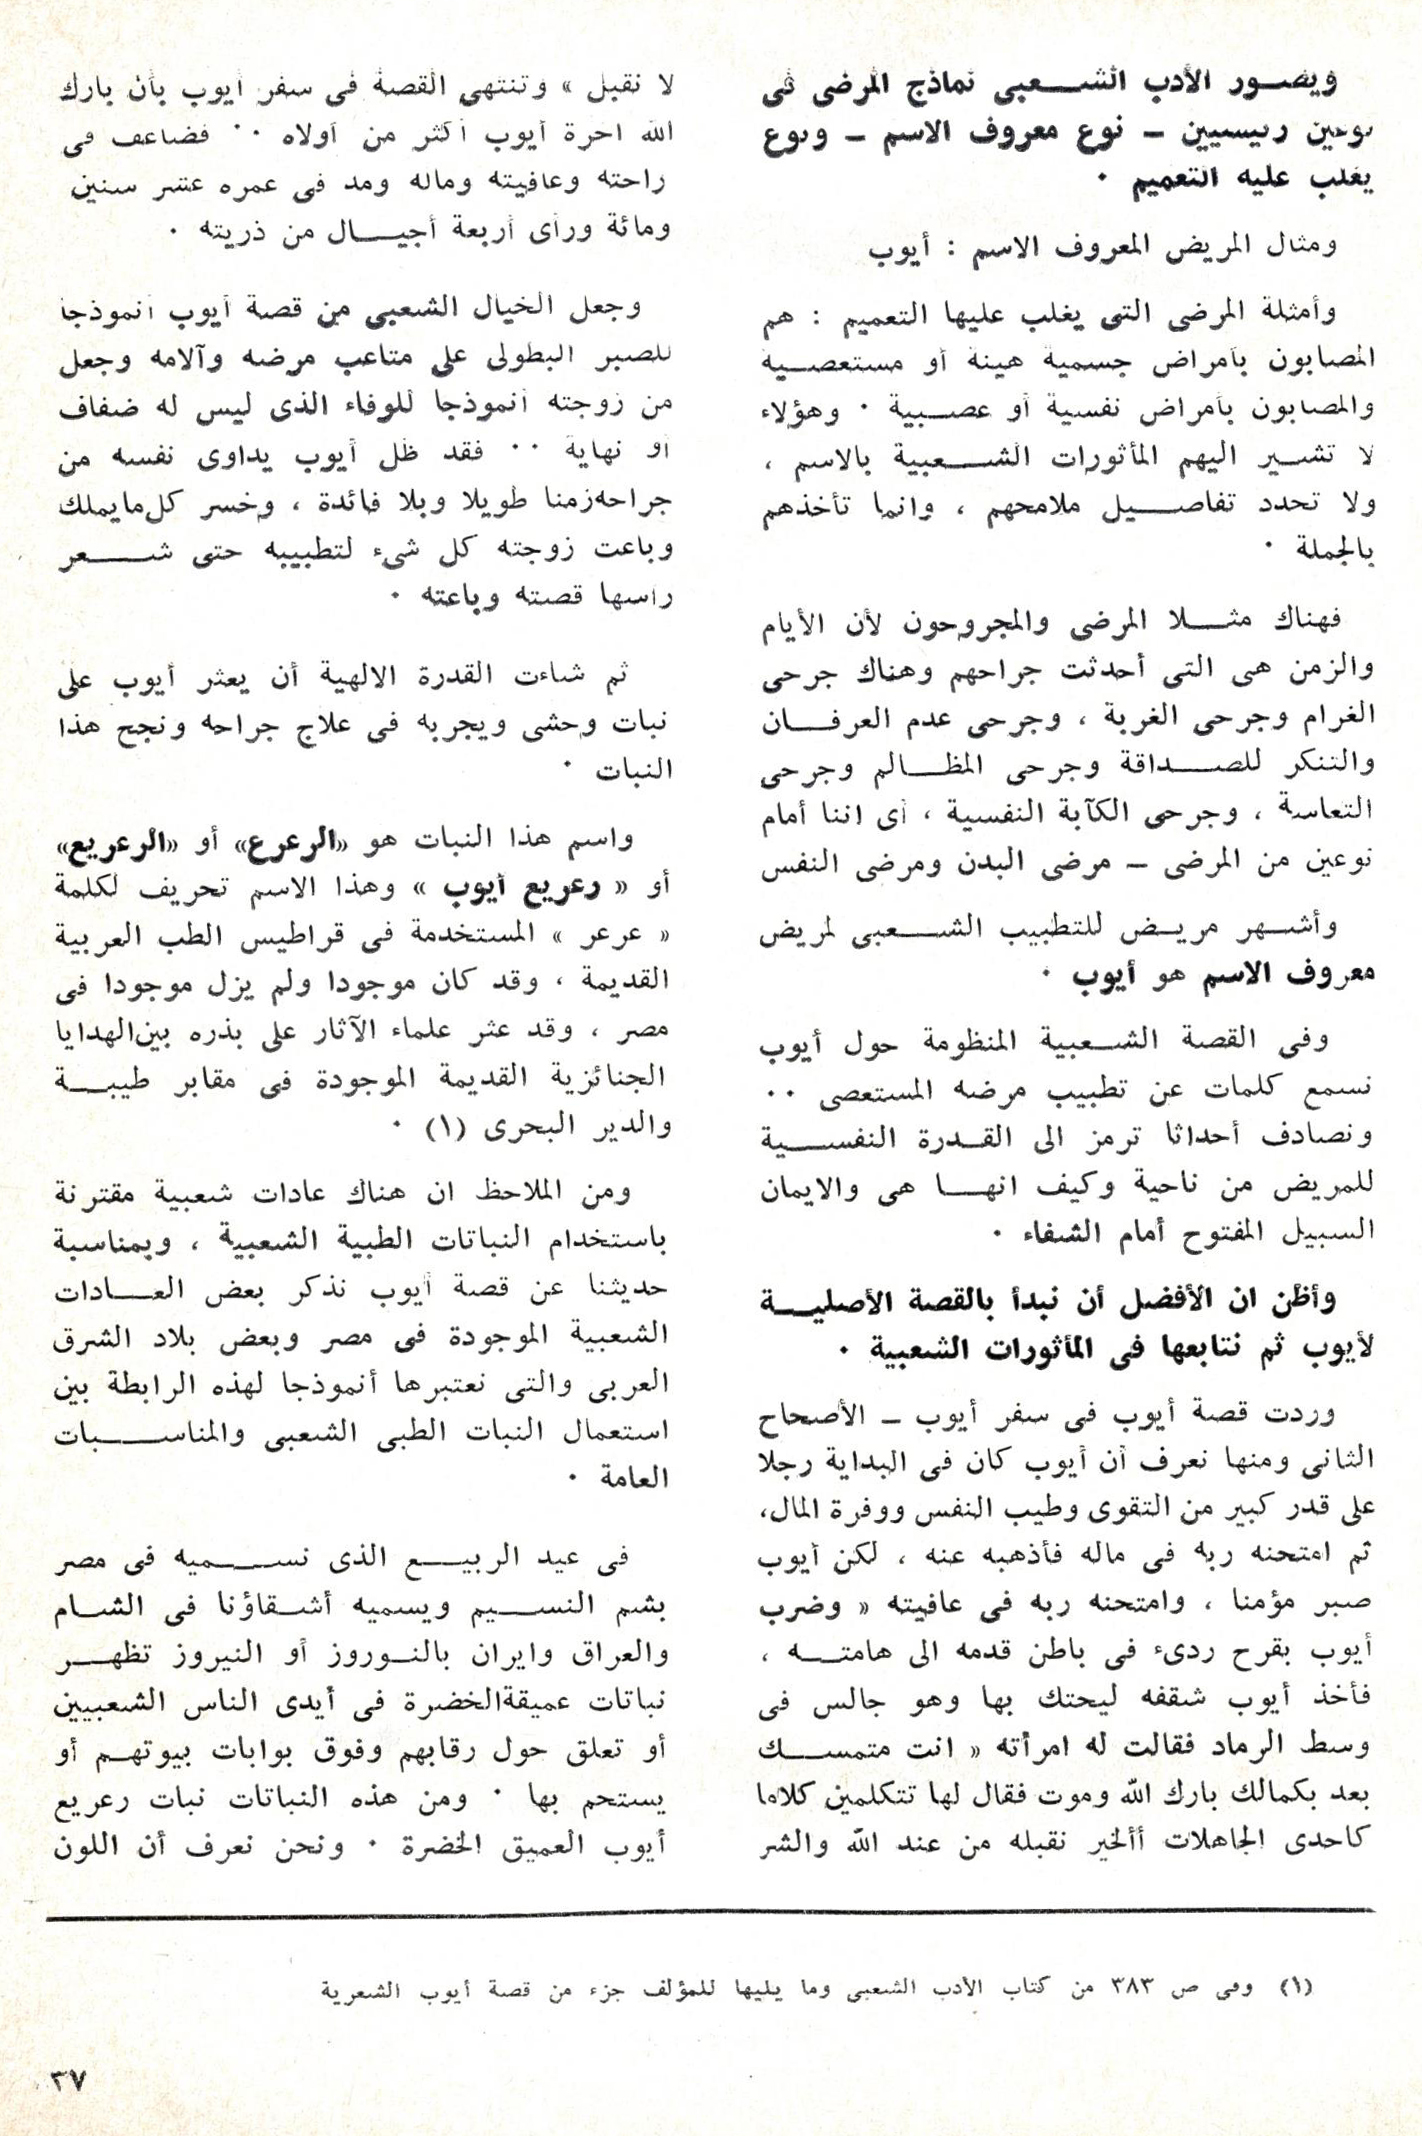 ويصور الأدب الشعبى نماذج المرضى فى
نوعين رئيسيين – نوع معروف الاسم – ونوع
يغلب عليه التعميم ٠
ومثال المريض المعروف الاسم : أيوب
وأمثلة المرضى التى يغلب عليها التعميم : هم
المصابون بأمراض جسمية هينة أو مستعصية
والمصابون بأمراض نفسية أو عصبية ٠ وهؤلاء
لا تشير اليهم المأثورات الشعبية بالاسم ،
ولا تحدد تفاصيل ملامحهم ، وانما تأخذهم
بالجملة ٠
فهناك مثلا المرضى والمجروحون لأن الأيام
والزمن هى التى أحدثت جراحهم وهناك جرحى
الغرام وجرحى الغربة ، وجرحى عدم العرفان
والتنكر للصداقة وجرحى المظالم وجرحى
التعاسة ، وجرحى الكآبة النفسية ، أى اننا أمام
نوعين من المرضى – مرضى البدن ومرضى النفس
وأشهر مريض للتطبيب الشعبى لمريض
معروف الاسم هو أيوب ٠
وفى القصة الشعبية المنظومة حول أيوب
نسمع كلمات عن تطبيب مرضه المستعصى ٠٠
ونصادف أحداثا ترمز الى القدرة النفسية
للمريض من ناحية وكيف انها هى والايمان
السبيل المفتوح أمام الشفاء ٠
وأظن ان الأفضل أن نبدأ بالقصة الأصلية
لأيوب ثم نتابعها فى المأثورات الشعبية ٠
وردت قصة أيوب فى سفر أيوب – الأصحاح
الثانى ومنها نعرف أن أيوب كان فى البداية رجلا
على قدر كبير من التقوى وطيب النفس ووفرة المال،
ثم امتحنه ربه فى ماله فأذهبه عنه ، لكن أيوب
صبر مؤمنا ، وامتحنه ربه فى عافيته « وضرب
أيوب بقرح ردىء فى باطن قدمه الى هامته ،
فأخذ أيوب شقفه ليحتك بها وهو جالس فى
وسط الرماد فقالت له امرأته « انت متمسك
بعد بكمالك بارك الله وموت فقال لها تتكلمين كلاما
كاحدى الجاهلات أألخير نقبله من عند الله والشر
لا نقبل » وتنتهى القصة فى سفر أيوب بأن بارك
الله آخرة أيوب أكثر من أولاه ٠٠ فضاعف فى
راحته وعافيته وماله ومد فى عمره عشر سنين
ومائة ورأى أربعة أجيال من ذريته ٠
وجعل الخيال الشعبى من قصة أيوب أنموذجا
للصبر البطولى على متاعب مرضه وآلامه وجعل
من زوجته أنموذجا للوفاء الذى ليس له ضفاف
أو نهاية ٠٠ فقد ظل أيوب يداوى نفسه من
جراحه زمنا طويلا وبلا فائدة ، وخسر كل مايملك
وباعت زوجته كل شىء لتطبيبه حتى شعر
رأسها قصته وباعته ٠
ثم شاءت القدرة الالهية أن يعثر أيوب على
نبات وحشى ويجربه فى علاج جراحه ونجح هذا
النبات ٠
واسم هذا النبات هو «الرعرع» أو «الرعريع»
أو « رعريع أيوب » وهذا الاسم تحريف لكلمة
« عرعر » المستخدمة فى قراطيس الطب العربية
القديمة ، وقد كان موجودا ولم يزل موجودا فى
مصر ، وقد عثر علماء الآثار على بذره بين الهدايا
الجنائزية القديمة الموجودة فى مقابر طيبة
والدير البحرى (١) ٠
ومن الملاحظ ان هناك عادات شعبية مقترنة
باستخدام النباتات الطبية الشعبية ، وبمناسبة
حديثنا عن قصة أيوب نذكر بعض العادات
الشعبية الموجودة فى مصر وبعض بلاد الشرق
العربى والتى نعتبرها أنموذجا لهذه الرابطة بين
استعمال النبات الطبى الشعبى والمناسبات
العامة ٠
فى عيد الربيع الذى نسميه فى مصر
بشم النسيم ويسميه أشقاؤنا فى الشام
والعراق وايران بالنوروز أو النيروز تظهر
نباتات عميقة الخضرة فى أيدى الناس الشعبيين
أو تعلق حول رقابهم وفوق بوابات بيوتهم أو
يستحم بها ٠ ومن هذه النباتات نبات رعريع
أيوب العميق الخضرة ٠ ونحن نعرف أن اللون
(١) وفى ص ٣٨٣ من كتاب الأدب الشعبى وما يليها للمؤلف جزء من قصة أيوب الشعرية
٣٧